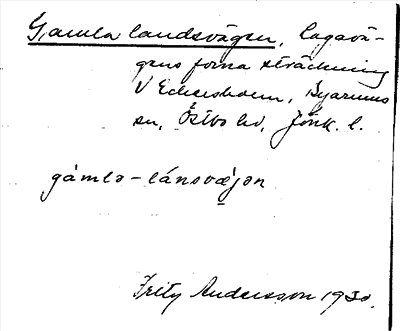 Gamla landsvägen, Lagavä-
gens forna sträckning
V Eckersholm, Byarums
sn, Östbo hd, Jönk. l.
gàmlə-lánsvæjən
Fritz Andersson 1930.